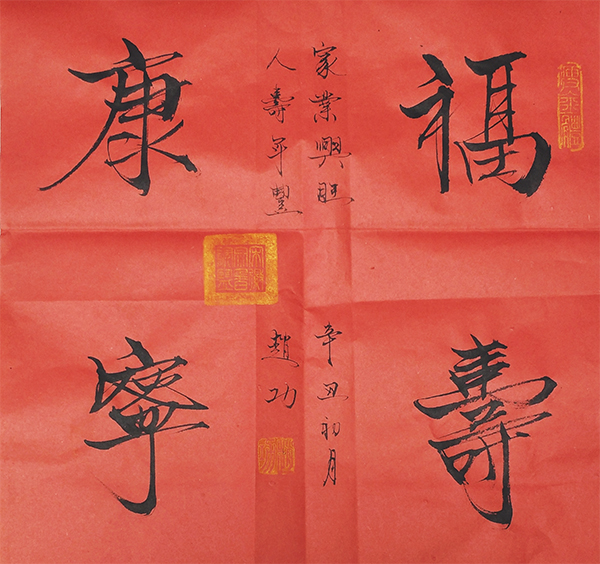 福
壽
康
寧
家業興旺
人壽年豐
辛丑初月
趙功